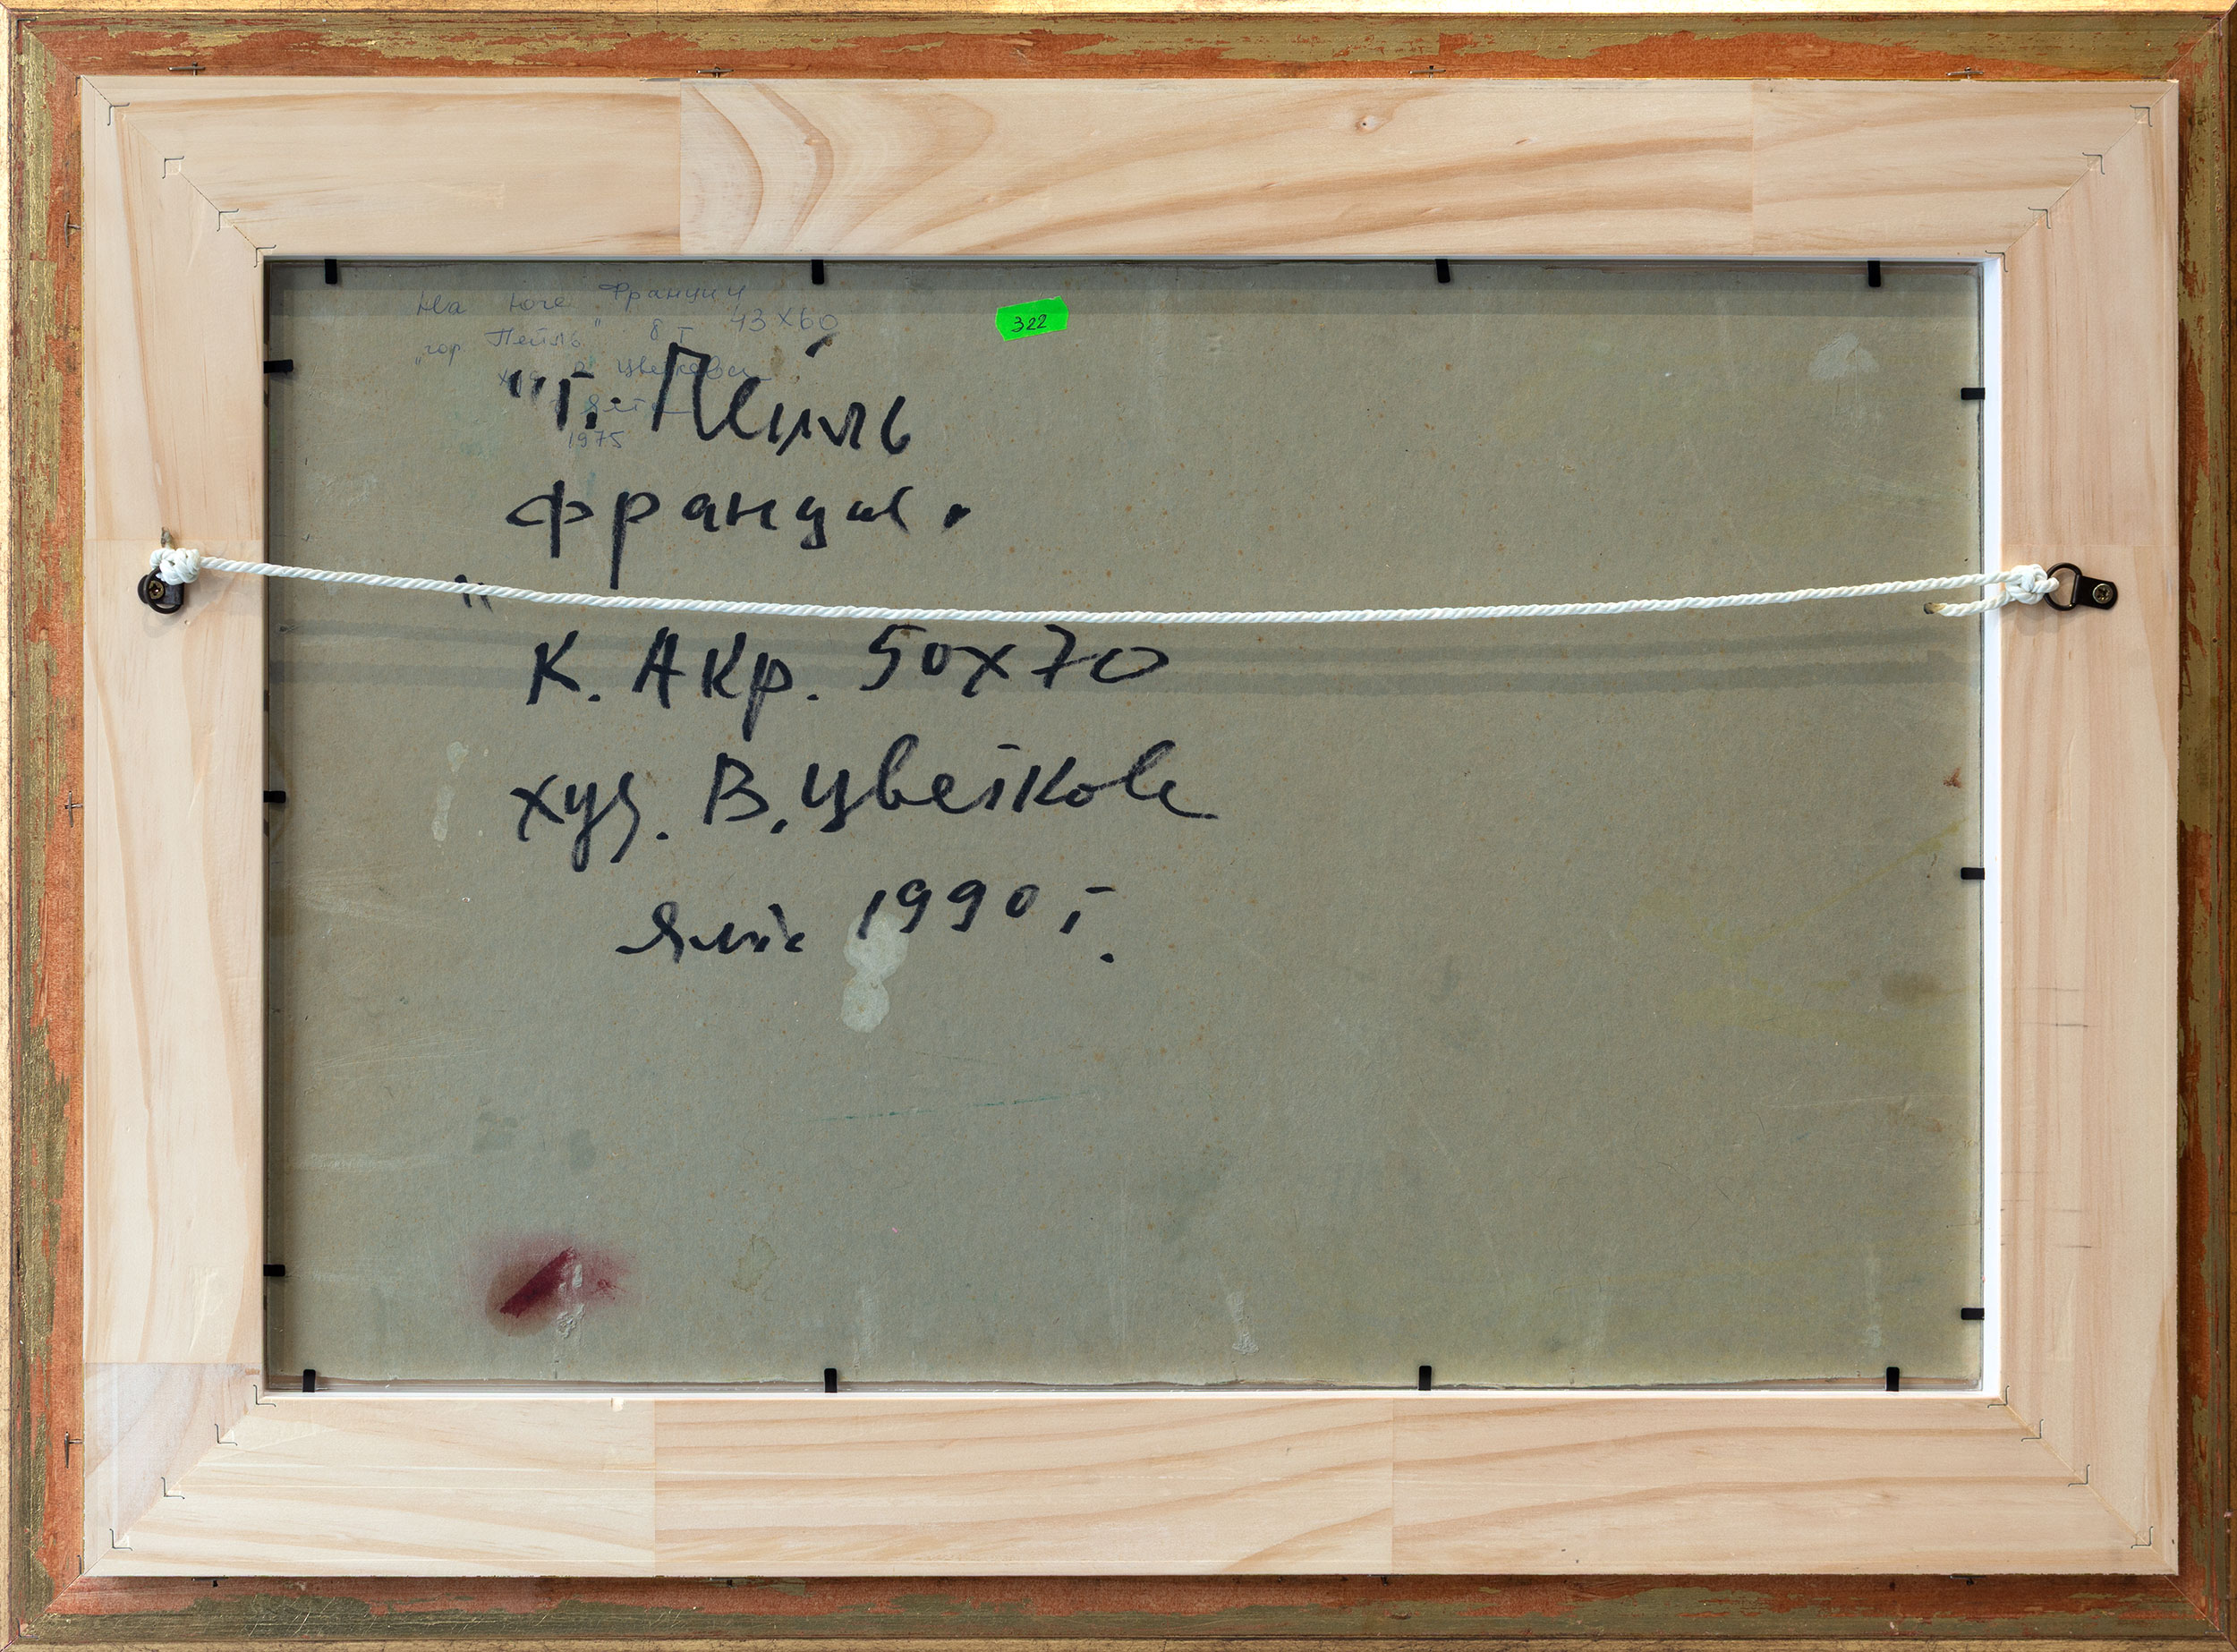 На юге Франции
"гор Пейль" 8 т 43х60
худ В Цветкова
Ялта
1975
322
"г. Пейль
Франция.
"
К. Акр. 50х70
худ. В. Цветкова
Ялта 1990 г.